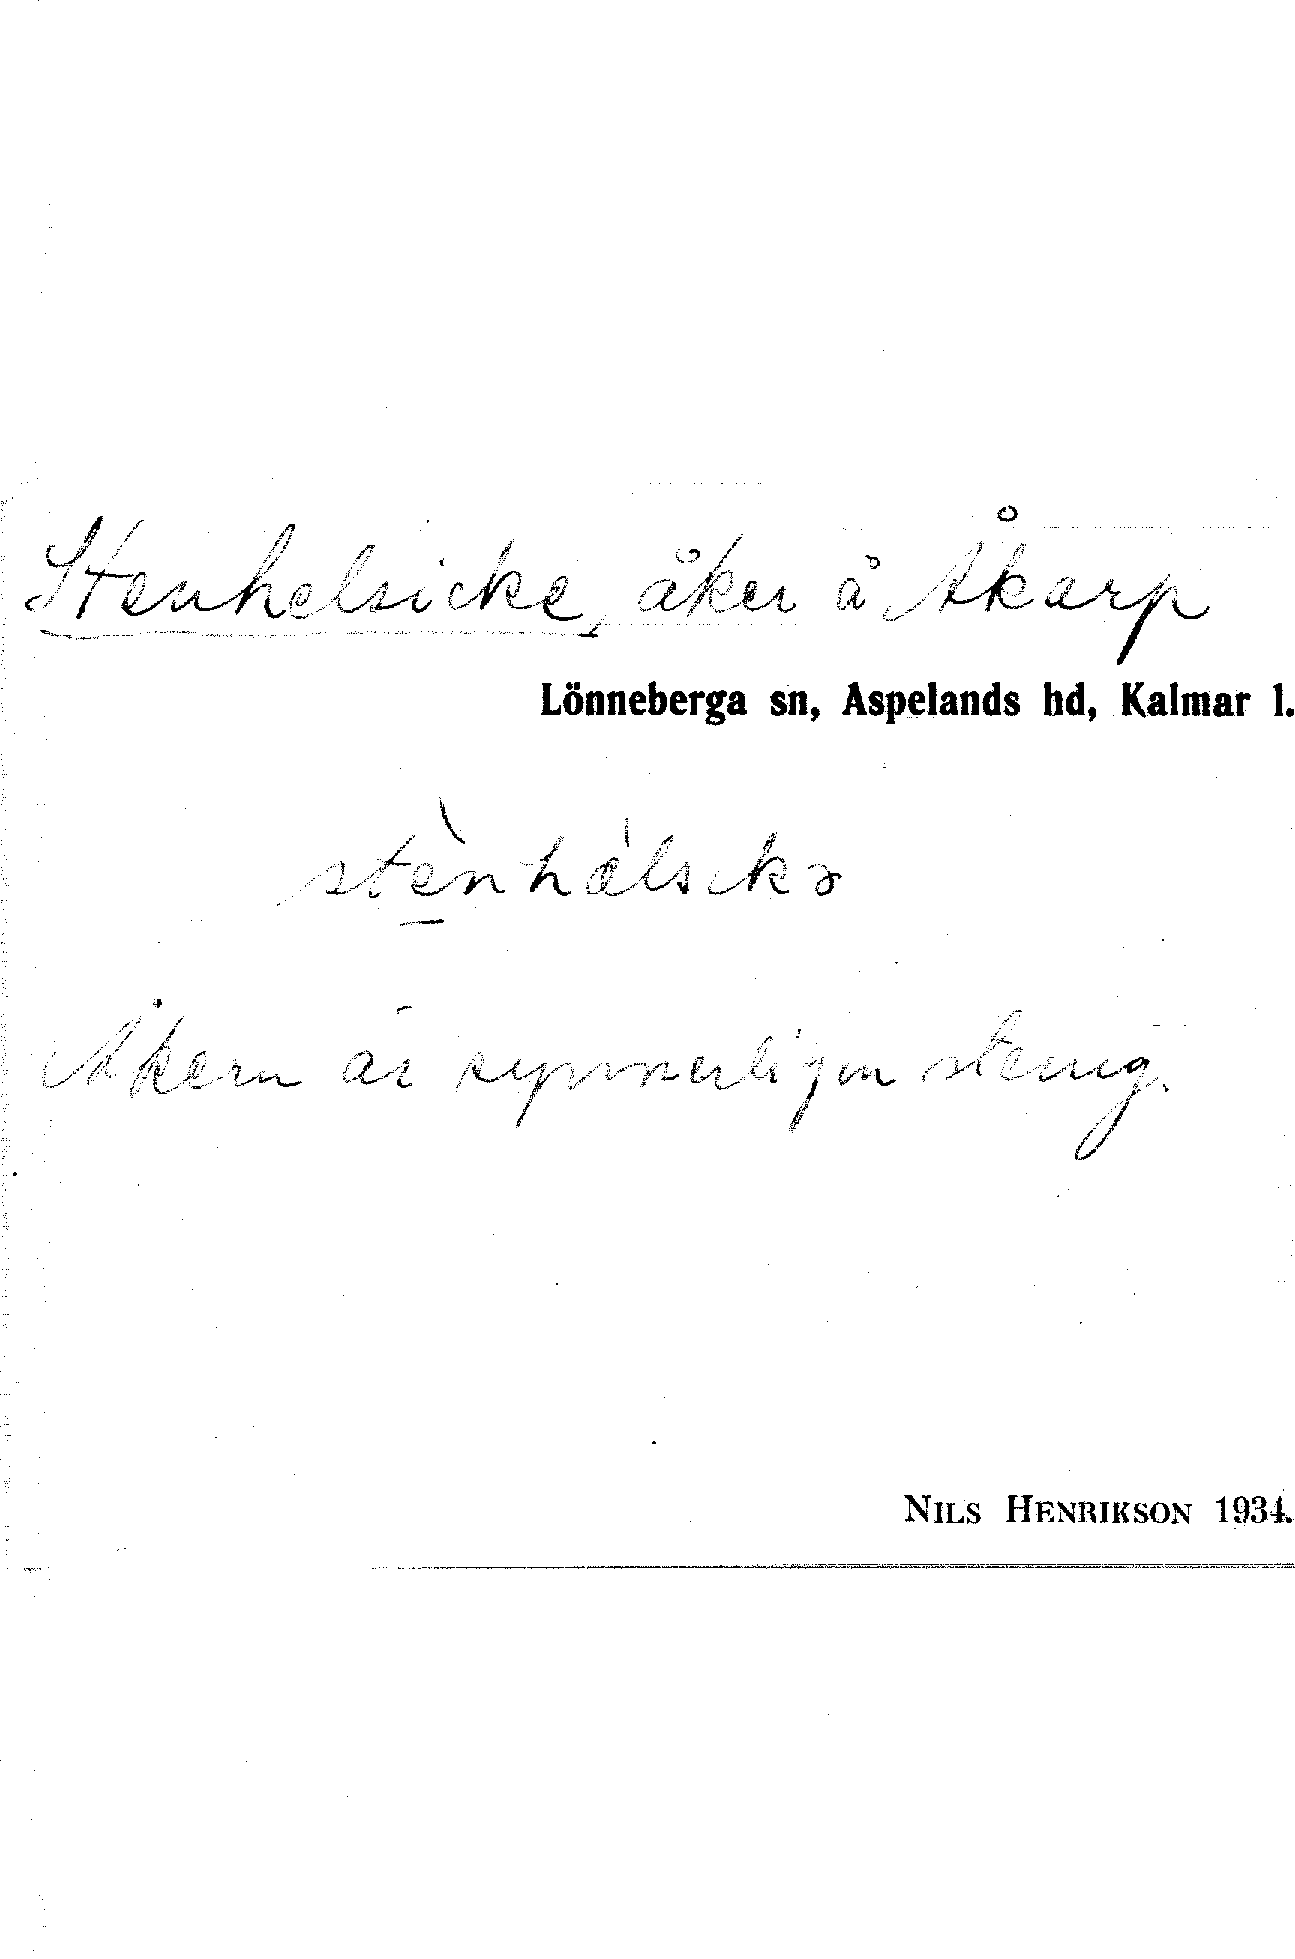 Stenhelsicke, åker å Åkarp
Lönneberga sn, Aspelands hd, Kalmar l.
stè̲nhæ̀lsıkə
Åkern är synnerligen stenig.
NILS HENRIKSON 1934.